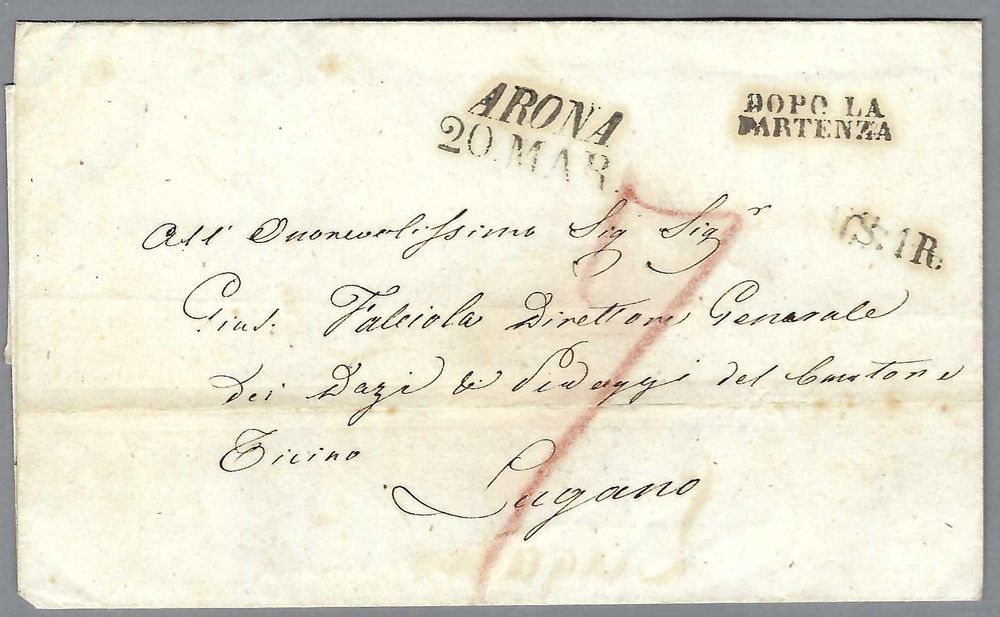 ARONA
20. MAR.
DOPO LA
PARTENZA
C.S. 1R.
All' Onorevolissimo Sig Sigr
Gius. Falciola Direttore Generale
dei Dazi & Pedaggi del Cantone
Ticino
Lugano
7